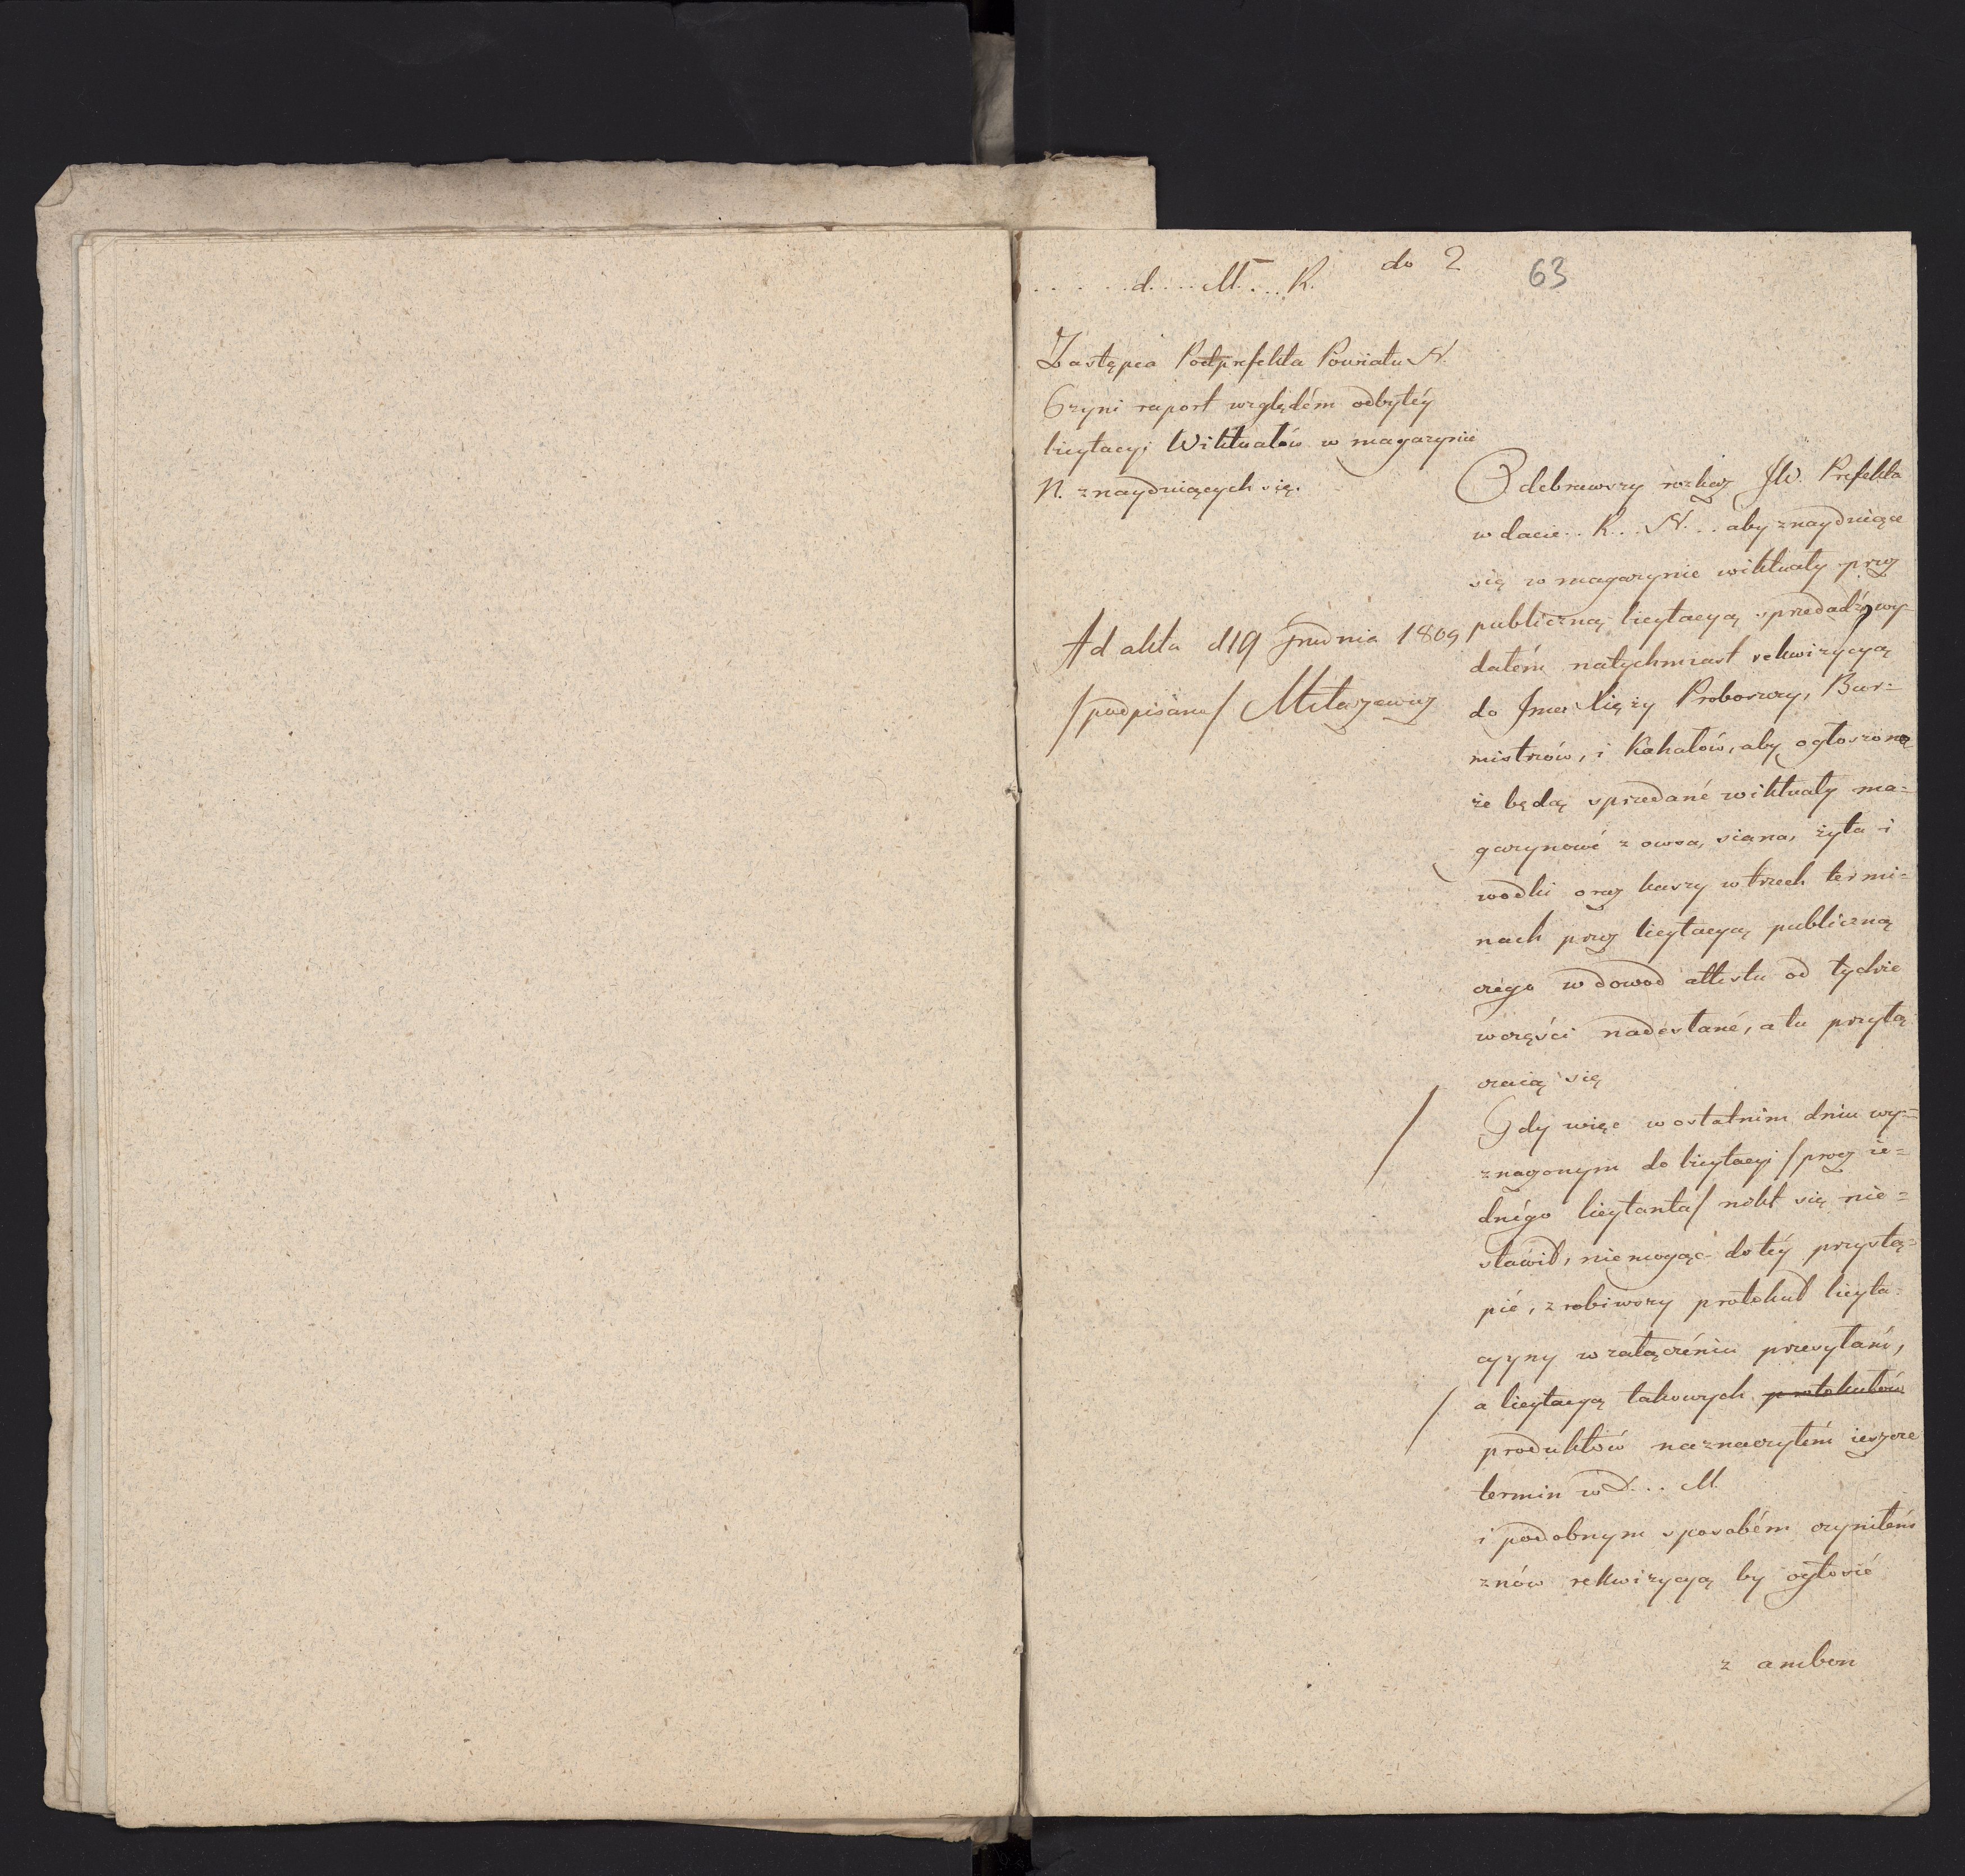 do 2
63
. . . . . d. . . . M. . . . R.
Zastępca Podprefekta Powiatu N.
Czyni raport względém odbytéy
licytacyi Wiktuałów w magazynie
N. znayduiących się.
Ad akta d 19 Grudnia 1809
/podpisano/
Odebrawszy rozkaz JW. Prefekta
w dacie . . R. . . N. . . aby znayduiące
się w magazynie wiktuały przez
publiczną licytacyą sprzedadź, wy-
dałém natychmiast rekwizycyą
do Xięży Proboszczy, Bur=
mistrzów, i Kahałów, aby ogłoszono
że będą sprzedané wiktuały ma=
gazynowé z owsa, siana, żyta i
wodki oraz kaszy w trzech termi=
nach przez licytacyą publiczną
czego w dowod attesta od tychże
w części nadesłané, a tu przyłą
czaią się
/ Gdy więc w ostatnim dniu wy=
znaczonym do licytacyi /prócz ie=
dnégo licytanta/ nikt się nie=
stawił, niemogąc do téy przystą=
pić, zrobiwszy protokuł licyta=
cyyny w załączéniu przesyłam,
/ a licytacyą takowych protokułów
produktów naznaczyłém ieszcze
termin w D. . . M.
i podobnym sposobém czyniłém
znów rekwizycyą by ogłosić
z ambon